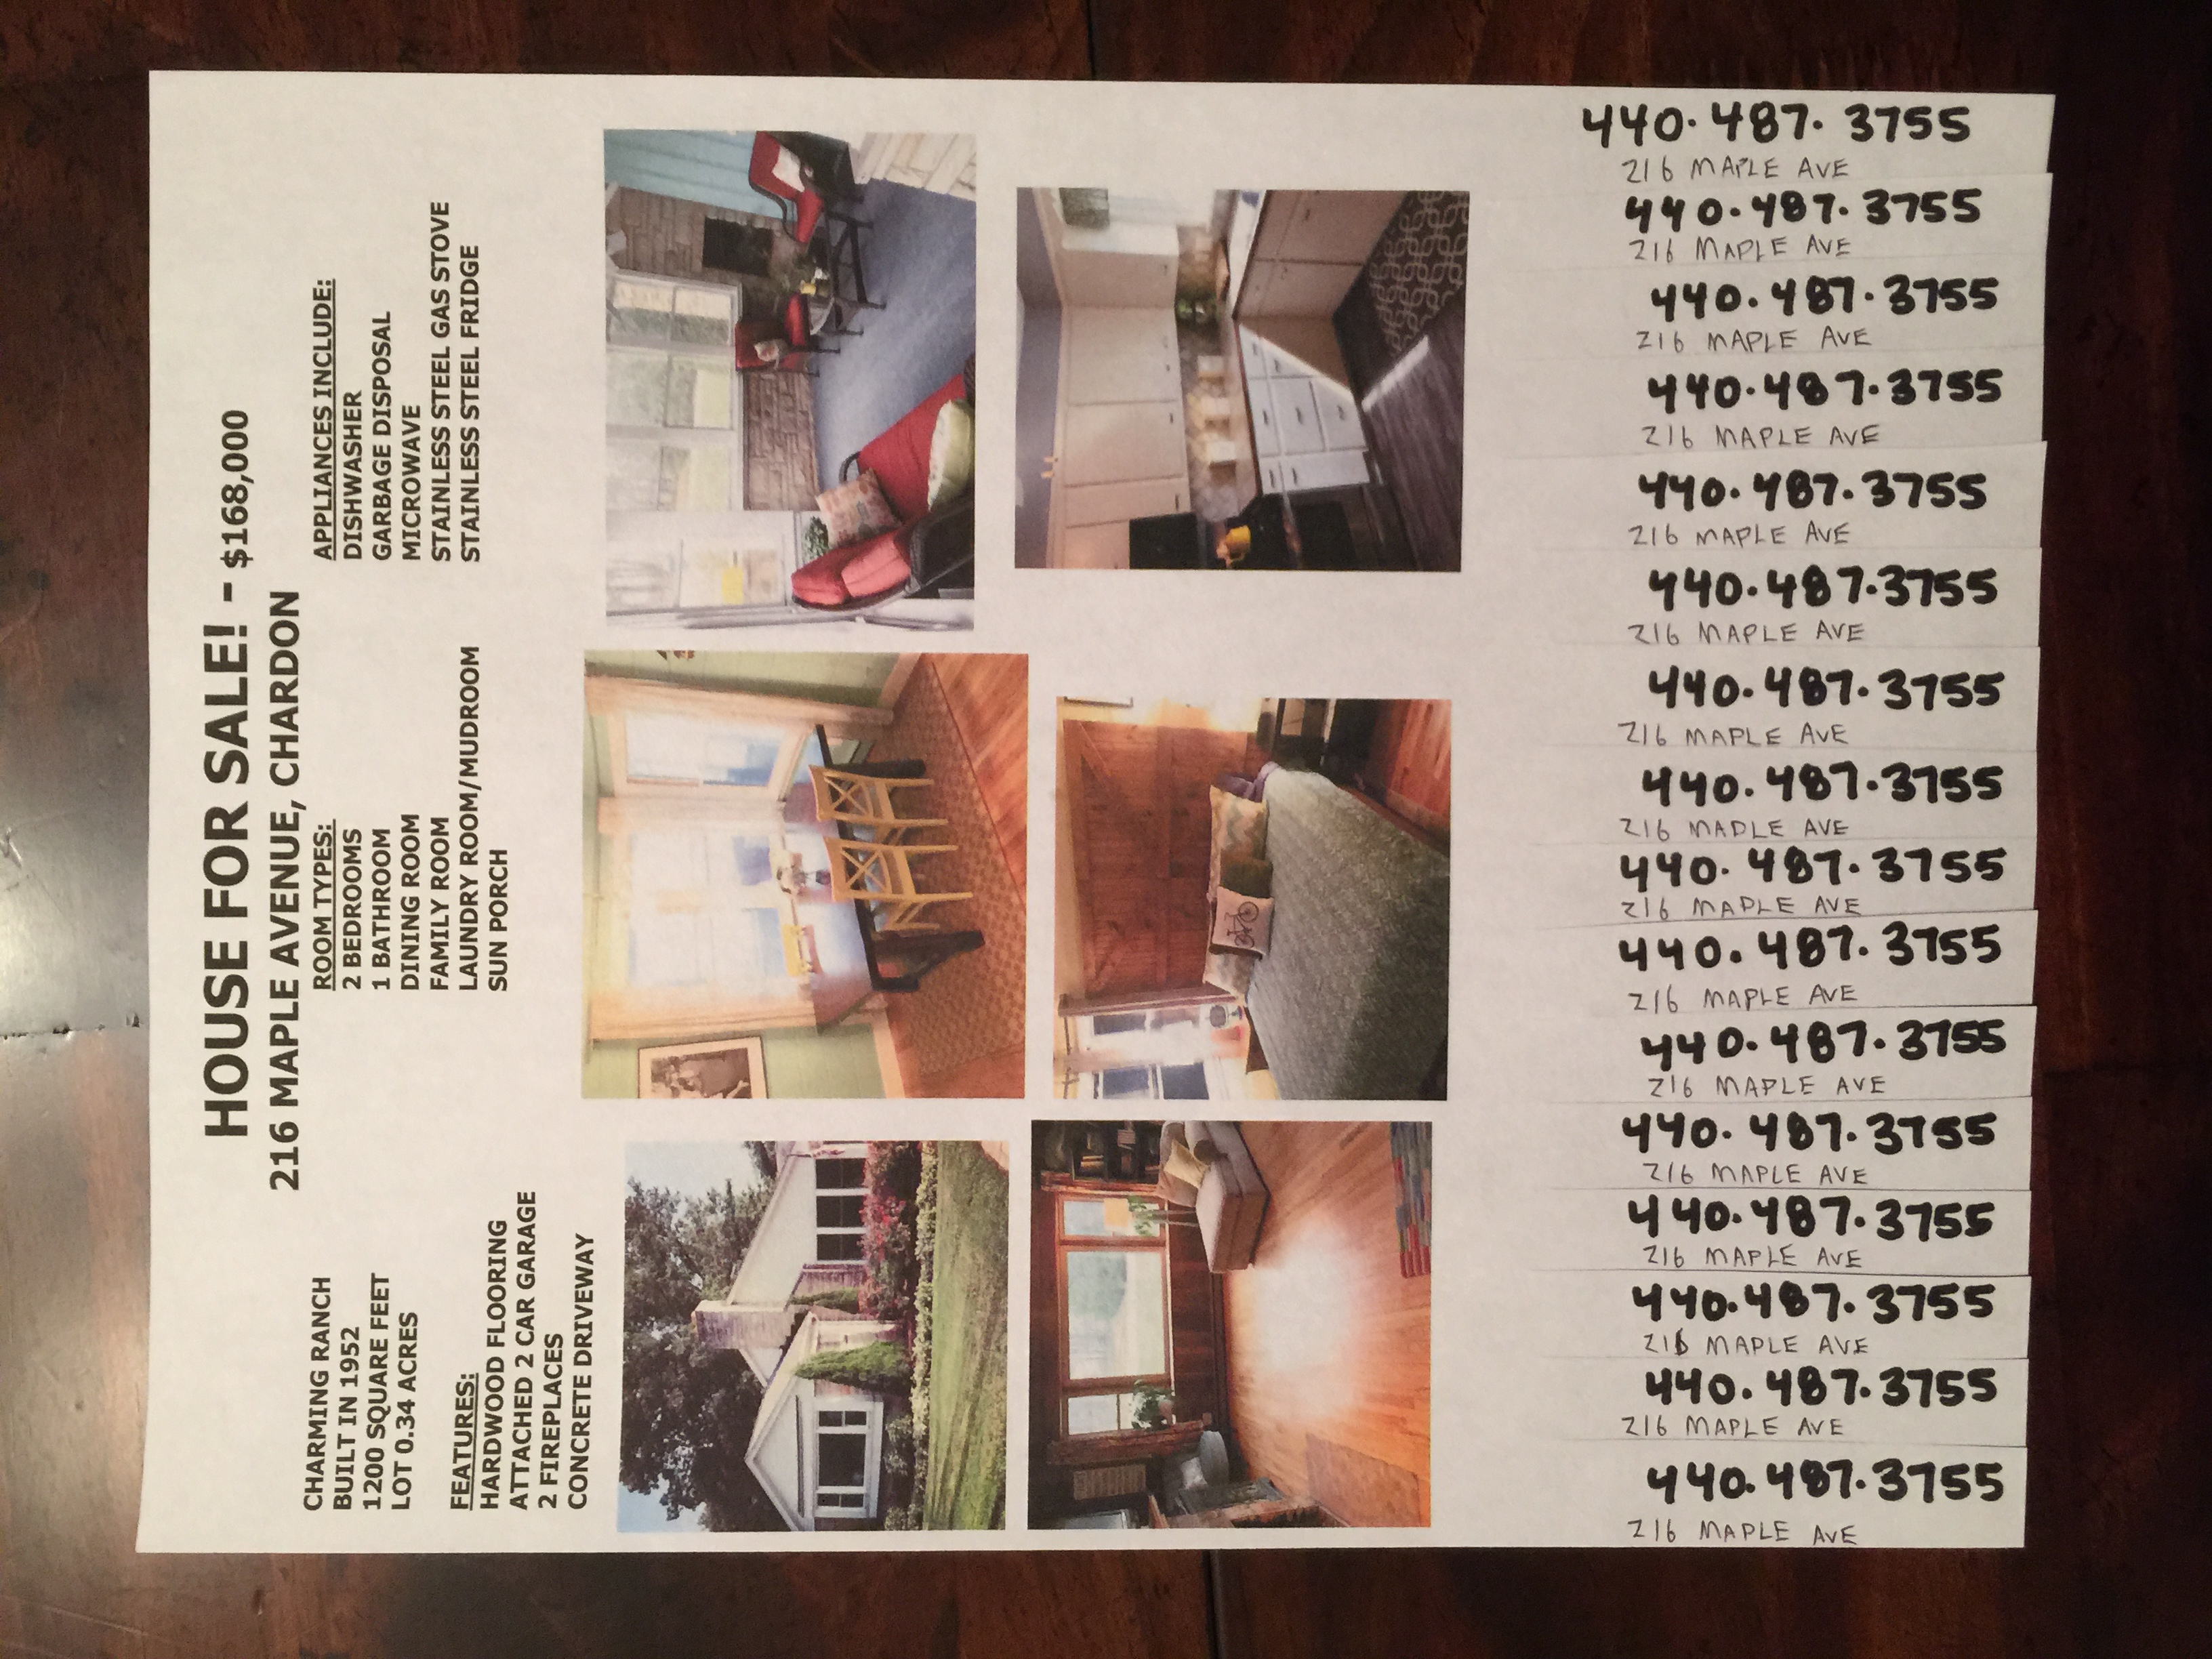 HOUSE FOR SALE! - $168,000
216 MAPLE AVENUE, CHARDON
CHARMING RANCH
BUILT IN 1952
1200 SQUARE FEET
LOT 0.34 ACRES
FEATURES:
HARDWOOD FLOORING
ATTACHED 2 CAR GARAGE
2 FIREPLACES
CONCRETE DRIVEWAY
ROOM TYPES:
2 BEDROOMS
1 BATHROOM
DINING ROOM
FAMILY ROOM
LAUNDRY ROOM/MUDROOM
SUN PORCH
APPLIANCES INCLUDE:
DISHWASHER
GARBAGE DISPOSAL
MICROWAVE
STAINLESS STEEL GAS STOVE
STAINLESS STEEL FRIDGE
440.487.3755
216 MAPLE AVE
440.487.3755
216 MAPLE AVE
440.487.3755
216 MAPLE AVE
440.487.3755
216 MAPLE AVE
440.487.3755
216 MAPLE AVE
440.487.3755
216 MAPLE AVE
440.487.3755
216 MAPLE AVE
440.487.3755
216 MAPLE AVE
440.487.3755
216 MAPLE AVE
440.487.3755
216 MAPLE AVE
440.487.3755
216 MAPLE AVE
440.487.3755
216 MAPLE AVE
440.487.3755
216 MAPLE AVE
440.487.3755
216 MAPLE AVE
440.487.3755
216 MAPLE AVE
440.487.3755
216 MAPLE AVE